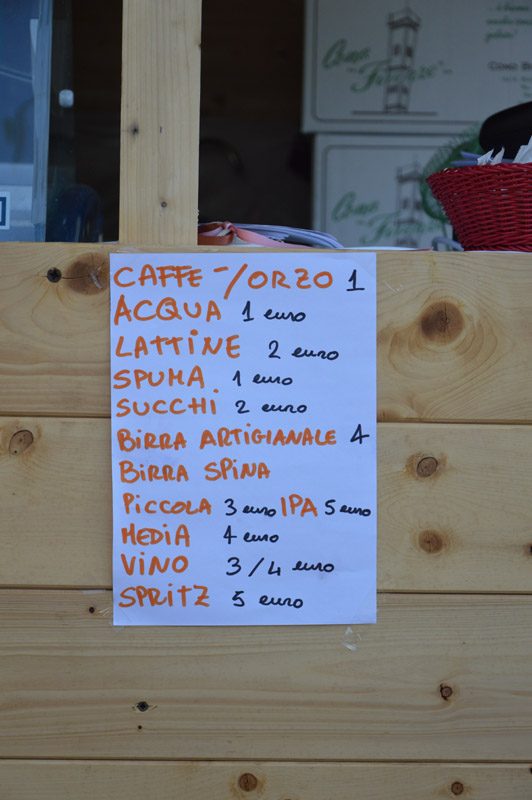 Cono
Firenze
CONO
Cono
CAFFE -/ORZO 1
ACQUA 1 euro
LATTINE 2 euro
SPUMA 1 euro
SUCCHI 2 euro
BIRRA ARTIGIANALE 4
BIRRA SPINA
PICCOLA 3 euro IPA 5 euro
MEDIA 4 euro
VINO 3/4 euro
SPRITZ 5 euro